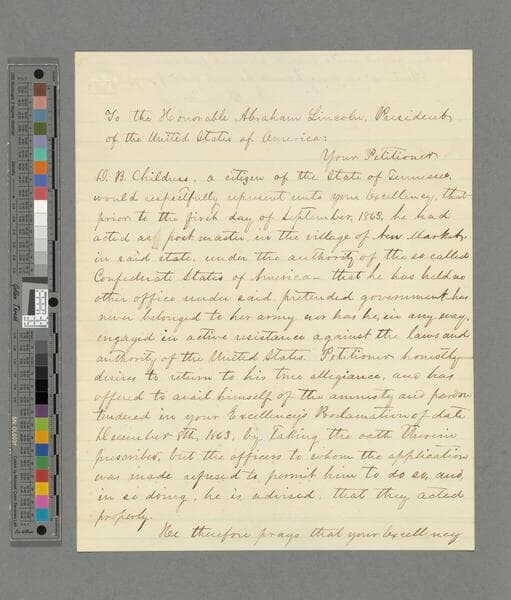 To the Honorable Abraham Lincoln, President,
of the United States of America:
Your Petitioner
D. B. Childress, a citizen of the State of Tennessee,
would respectfully represent unto your Excellency, that
prior to the first day of September, 1863, he had
acted as post master, in the village of New Market,
in said state, under the authority of the so called
Confederate States of America — that he has held no
other office under said pretended government has
never belonged to her army nor has he, in any way,
engaged in active resistance against the laws and
authority of the United States. Petitioner honestly
desires to return to his true allegiance, and has
offered to avail himself of the amnesty and pardon
tendered in your Excellency's Proclamation of date
December 8th, 1863, by taking the oath therein
prescribed, but the officers to whom the application
was made refused to permit him to do so, and,
in so doing, he is advised, that they acted
properly.
He therefore prays that your Excellency